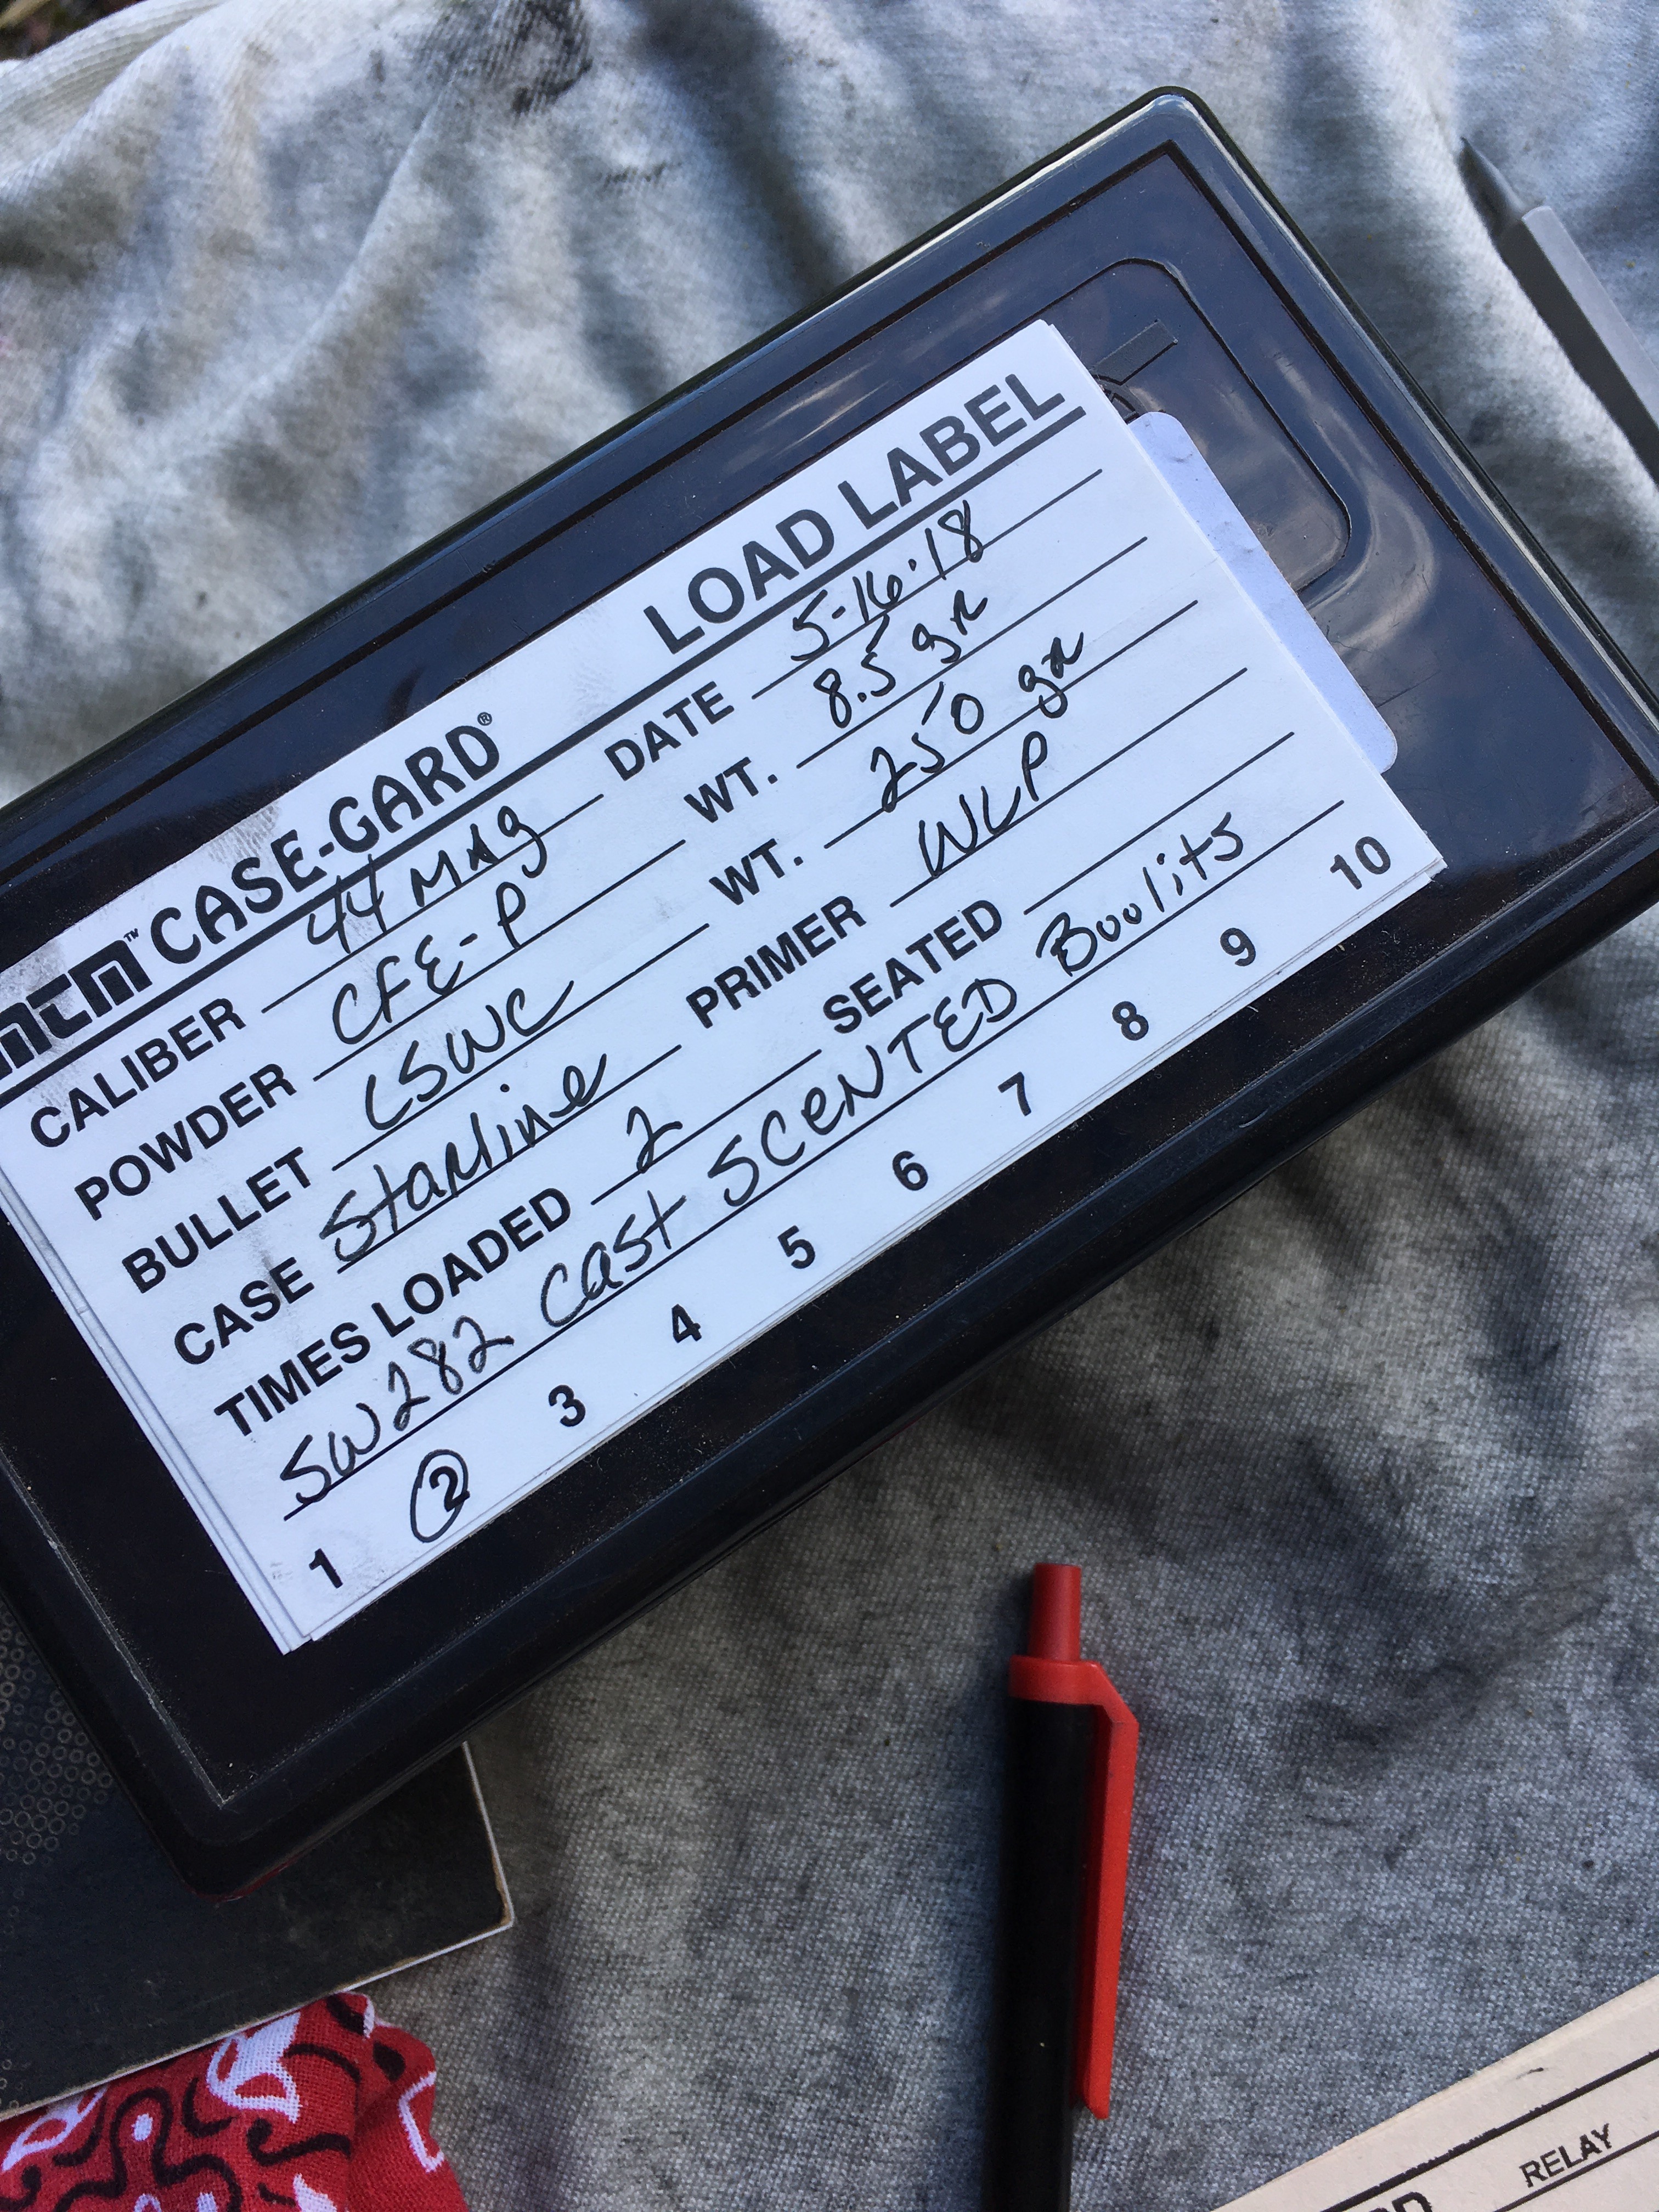 MTM™ CASE-GARD® LOAD LABEL
CALIBER 44 MAG DATE 5-16-18
POWDER CFE-P WT. 8.5 gr
BULLET LSWC WT. 250 gr
CASE Starline PRIMER WLP
TIMES LOADED 2 SEATED
SW282 Cast SCENTED Boolits
1 2 3 4 5 6 7 8 9 10
RELAY